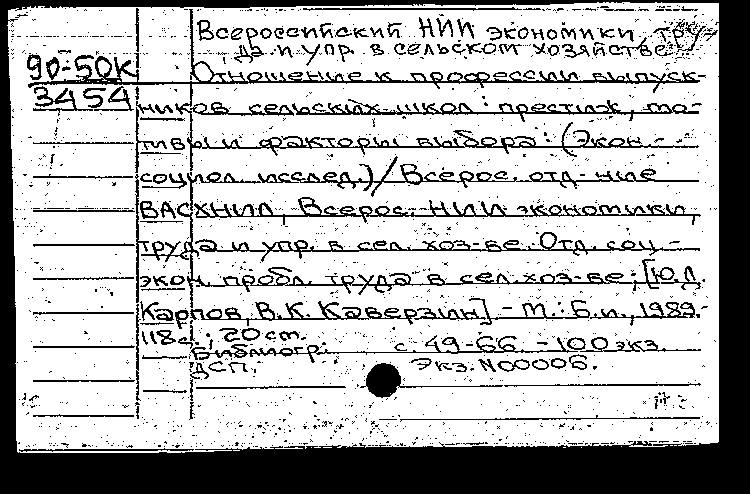 Всероссийский НИИ экономики, тру-
да и упр. в сельском хозяйстве.
90-50К
3454
Отношение к профессии выпуск-
ников сельских школ : престиж, мо-
тивы и факторы выбора : (Экон.-
социол. исслед.) / Всерос. отд-ние
ВАСХНИЛ, Всерос. НИИ экономики,
труда и упр. в сел. хоз-ве. Отд. соц.-
экон. пробл. труда в сел. хоз-ве ; [Ю.Д.
Карпов, В.К. Каверзин] - М. : Б.и., 1989.-
118 с. ; 20 см.
Библиогр.: с. 49-66. - 100 экз.
ДСП. Экз. N00006.